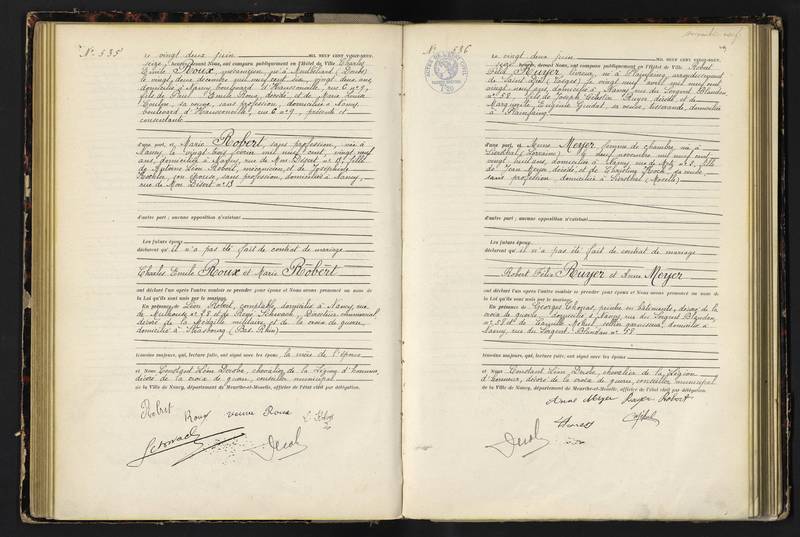 N° 535
Le vingt deux juin MIL NEUF CENT VINGT-NEUF,
devant Nous, ont comparu publiquement en l'Hôtel de Ville Charles
Emile Roux né à Montbéliard (Doubs)
le vingt deux décembre mil neuf cent six, vingt deux ans
domicilié à Nancy, boulevard d'Haussonville, rue C n° 9,
fils de Paul Emile Roux, décédé, et de Marie Louise
sa veuve, sans profession, domiciliée à Nancy,
boulevard d'Haussonville, rue C n° 9, présente et
consentante
d'une part, et Marie Robert, sans profession, née à
Nancy le vingt février mil neuf cent, vingt neuf
ans, domiciliée à Nancy, rue de Mon Désert n° 13, fille
de Antoine Léon Robert, mécanicien, et de Joséphine
son épouse, sans profession, domiciliés à Nancy,
rue de Mon Désert n° 13
d'autre part ; aucune opposition n'existant
Les futurs époux
déclarent qu'il n'a pas été fait de contrat de mariage
Charles Emile Roux et Marie Robert
ont déclaré l'un après l'autre vouloir se prendre pour époux et Nous avons prononcé au nom de
la Loi qu'ils sont unis par le mariage.
En présence de Léon Robert, comptable, domicilié à Nancy, rue
de Mulhouse n° 28 et de
décoré de la Médaille militaire et de la croix de guerre,
domicilié à Strasbourg (Bas Rhin)
témoins majeurs, qui, lecture faite, ont signé avec les époux, la mère de l'époux
et Nous Constant Léon Deroba, chevalier de la Légion d'honneur,
décoré de la croix de guerre, conseiller municipal
de la Ville de Nancy, département de Meurthe-et-Moselle, officier de l'état civil par délégation.
Robert Roux veuve Roux
N° 536
Le vingt deux juin MIL NEUF CENT VINGT-NEUF,
devant Nous, ont comparu publiquement en l'Hôtel de Ville Robert
Félix Ruyer né à Plainfaing, arrondissement
de Saint Dié (Vosges) le vingt neuf avril mil neuf cent
vingt neuf ans, domicilié à Nancy, rue du Sergent Blandan
n° 58, fils de Joseph Ruyer, décédé, et de
Marguerite Eugénie Guidat, sa veuve, tisserande, domiciliée
à Plainfaing
d'une part, et Anne Meyer femme de chambre, née à
(Lorraine) le deux novembre mil neuf cent
vingt huit ans, domiciliée à Nancy, rue de Metz n° 5, fille
de Jean Meyer, décédé, et de Christine Koch, sa veuve,
sans profession, domiciliée à (Moselle)
d'autre part ; aucune opposition n'existant
Les futurs époux
déclarent qu'il n'a pas été fait de contrat de mariage
Robert Félix Ruyer et Anne Meyer
ont déclaré l'un après l'autre vouloir se prendre pour époux et Nous avons prononcé au nom de
la Loi qu'ils sont unis par le mariage.
En présence de Georges peintre en bâtiments, décoré de la
croix de guerre, domicilié à Nancy, rue du Sergent Blandan,
n° 58 et de Camille domicilié à
Nancy, rue du Sergent Blandan n° 58
témoins majeurs, qui, lecture faite, ont signé avec les époux
et Nous Constant Léon Deroba, chevalier de la Légion
d'honneur, décoré de la croix de guerre, conseiller municipal
de la Ville de Nancy, département de Meurthe-et-Moselle, officier de l'état civil par délégation.
Anne Meyer Ruyer Robert